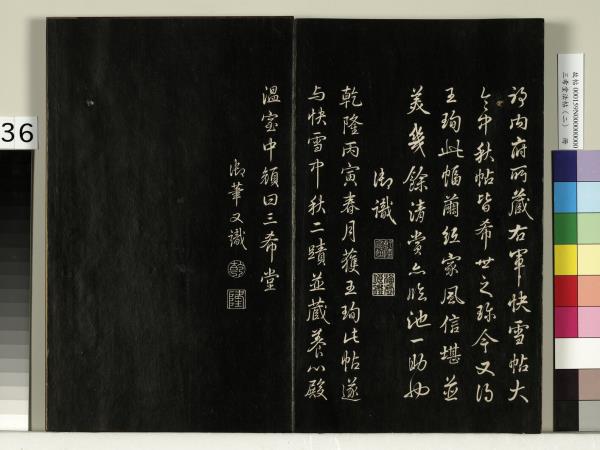 36
耶內府所藏右軍快雪帖大
令中秋帖皆希世之珍今又得
王珣此幅繭紙家風信堪並
美幾餘清賞亦臨池一助也
御識
乾隆丙寅春月獲王珣此帖遂
与快雪中秋二蹟並藏養心殿
溫室中顏曰三希堂
御筆又識
乾
隆
故帖 000159N000000000
三希堂法帖（二） 冊